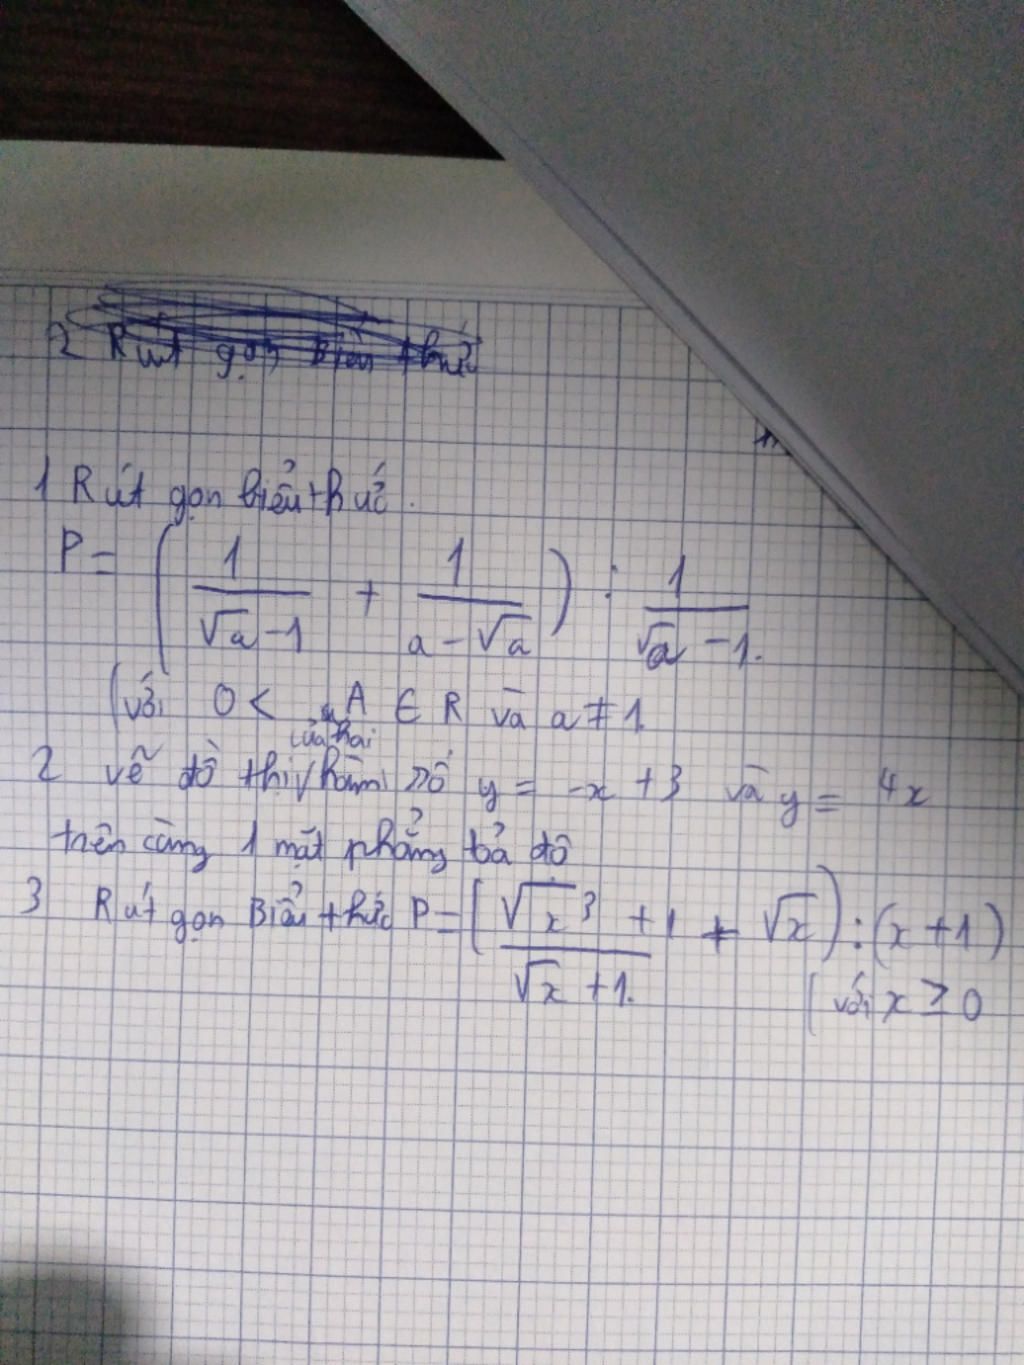 2 Rút gọn Biểu thức
1 Rút gọn biểu thức.
P = ( 1/(√a - 1) + 1/(a - √a) ) : 1/(√a - 1.
(với 0 < A ∈ R và a ≠ 1
của hai
2 vẽ đồ thị hàm số y = -x + 3 và y = 4x
trên cùng 1 mặt phẳng tỏa độ
3 Rút gọn Biểu thức P = ( (√x³ + 1)/(√x + 1.) + √x ) : (x + 1)
(với x ≥ 0